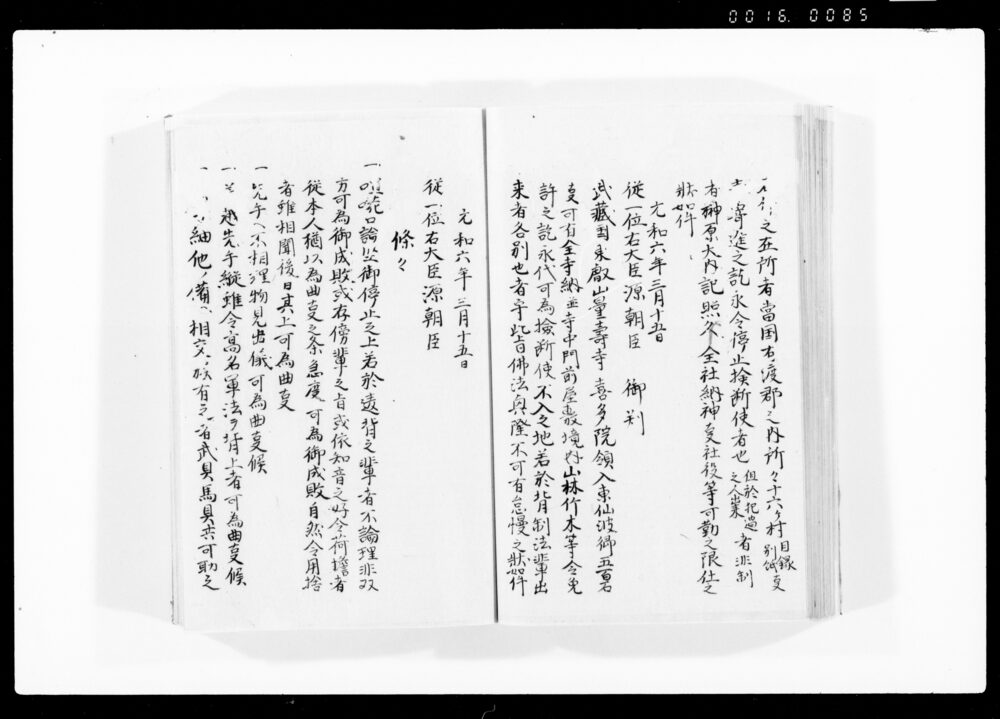 0016.0085
之在所者當国有渡郡之内所々十六ヶ村 目録別帋
寄進之訖永令停止撿断使者也 但於犯過之人業者非制
者榊原大内記照久全社納神事社役等可勤之限仕之
状如件
元和六年三月十五日
従一位右大臣源朝臣 御判
武藏国東叡山量壽寺喜多院領入東仙波郷五百石
事可有全寺納並寺中門前屋敷境内山林竹木等令免
許之訖永代可為撿断使不入之地若於背制法輩出
来者各別也者守此旨佛法興隆不可有怠慢之状如件
元和六年三月十五日
従一位右大臣源朝臣
條々
一喧嘩口論堅御停止之上若於違背之輩者不論理非双
方可為御成敗或存傍輩之旨或依知音之好令荷擔者
従本人猶以為曲事之条急度可為御成敗自然令用捨
者雖相聞後日其上可為曲事
一先手へ不相理物見出儀可為曲事候
一 越先手縦雖令高名軍法ヲ背上者可為曲事候
一 紬他ノ備へ相交ル族有之者武具馬具共可取之